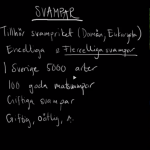 SVAMPAR
Tillhör svampriket (Domän, Eukaryota)
Encelliga & Flercelliga svampar
I Sverige 5000 arter
100 goda matsvampar
Giftiga svampar
Giftig, oätlig,